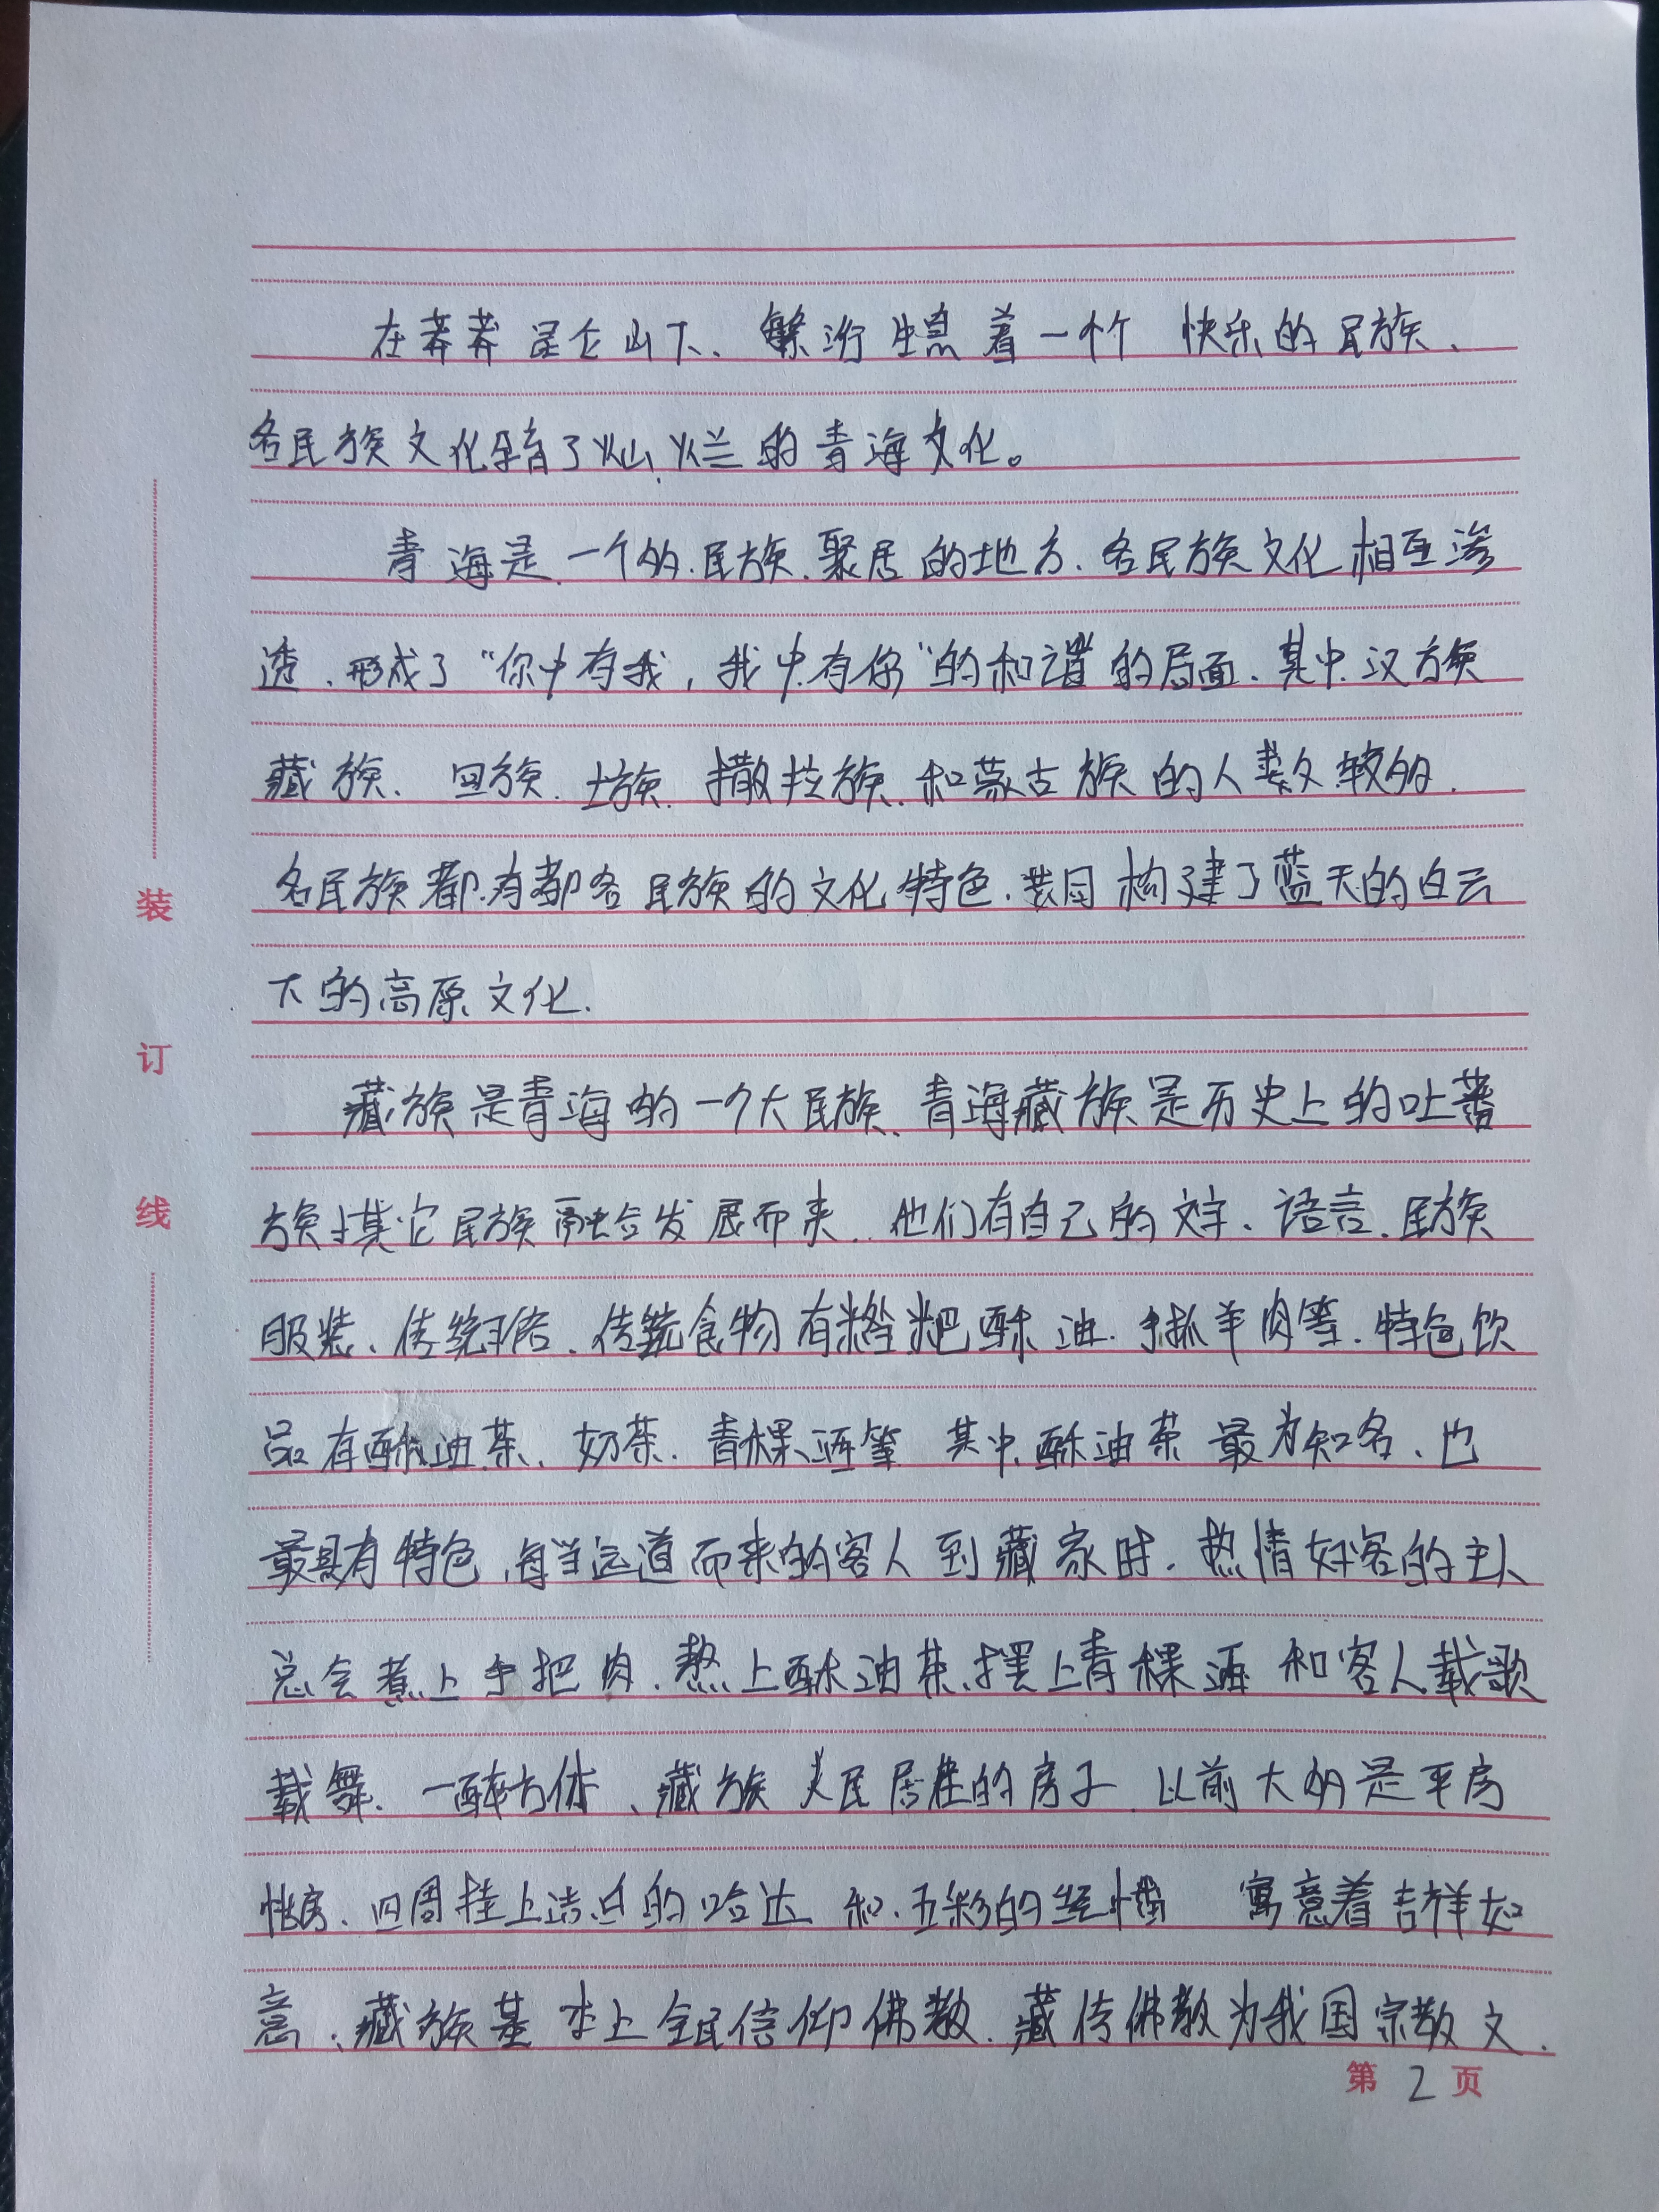 在莽莽昆仑山下、繁衍生息着一个个 快乐的民族、
各民族文化孕育了灿烂的青海文化。
青海是一个多民族聚居的地方、各民族文化相互渗
透、形成了“你中有我，我中有你”的和谐的局面、其中汉族
藏族、回族、土族、撒拉族、和蒙古族的人数较多、
各民族都有都各民族的文化特色、共同构建了蓝天的白云
下的高原文化.
藏族是青海的一个大民族、青海藏族是历史上的吐蕃
族与其它民族融合发展而来、他们有自己的文字、语言、民族
服装、传统、传统食物有糌粑酥油、手抓羊肉等、特色饮
品有酥油茶、奶茶、青稞酒等 其中酥油茶最为知名、也
最具有特色，每当远道而来的客人到藏家时、热情好客的主人
总会煮上手把肉、熬上酥油茶、摆上青稞酒 和客人载歌
载舞、一醉方休、藏族人民居住的房子、以前大多是平房
四周挂上洁白的哈达 和、五彩的经幡 寓意着吉祥如
意、藏族基本上全民信仰佛教、藏传佛教为我国宗教文、
装
订
线
第 2 页